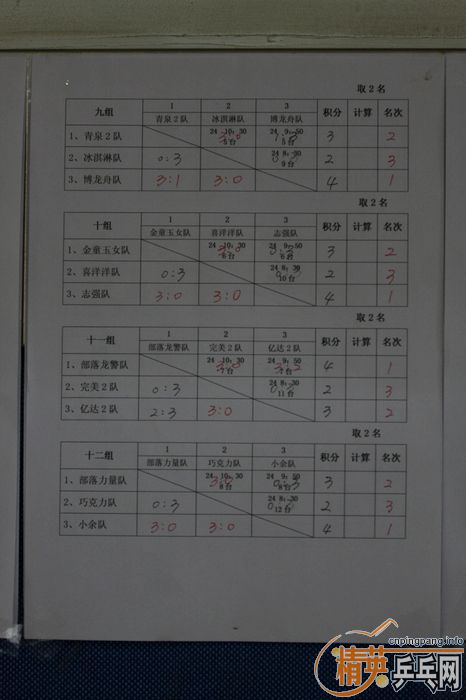 取2名
九组 1 2 3 积分 计算 名次
青泉2队 冰淇淋队 博龙舟队
1、青泉2队 24 10:30 5台 24 9:50 5台 3 2
2、冰淇淋队 0:3 24 8:30 9台 2 3
3、博龙舟队 3:1 3:0 4 1
取2名
十组 1 2 3 积分 计算 名次
金童玉女队 喜洋洋队 志强队
1、金童玉女队 24 10:30 6台 24 9:50 6台 3 2
2、喜洋洋队 0:3 24 8:30 10台 2 3
3、志强队 3:0 3:0 4 1
取2名
十一组 1 2 3 积分 计算 名次
部落龙警队 完美2队 亿达2队
1、部落龙警队 3:0 24 10:30 7台 3:2 24 9:50 7台 4 1
2、完美2队 0:3 24 8:30 11台 2 3
3、亿达2队 2:3 3:0 3 2
取2名
十二组 1 2 3 积分 计算 名次
部落力量队 巧克力队 小余队
1、部落力量队 24 10:30 8台 0:3 24 9:50 8台 3 2
2、巧克力队 0:3 24 8:30 12台 2 3
3、小余队 3:0 3:0 4 1
cnpingpang.info
精英乒乓网